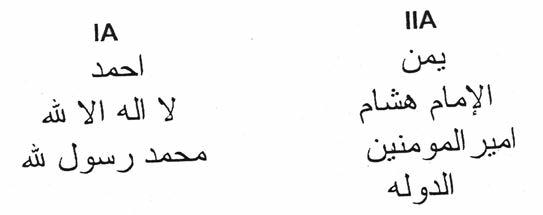 IA
احمد
لا اله الا لله
محمد رسول لله
IIA
يمن
الإمام هشام
امير المومنين
الدوله